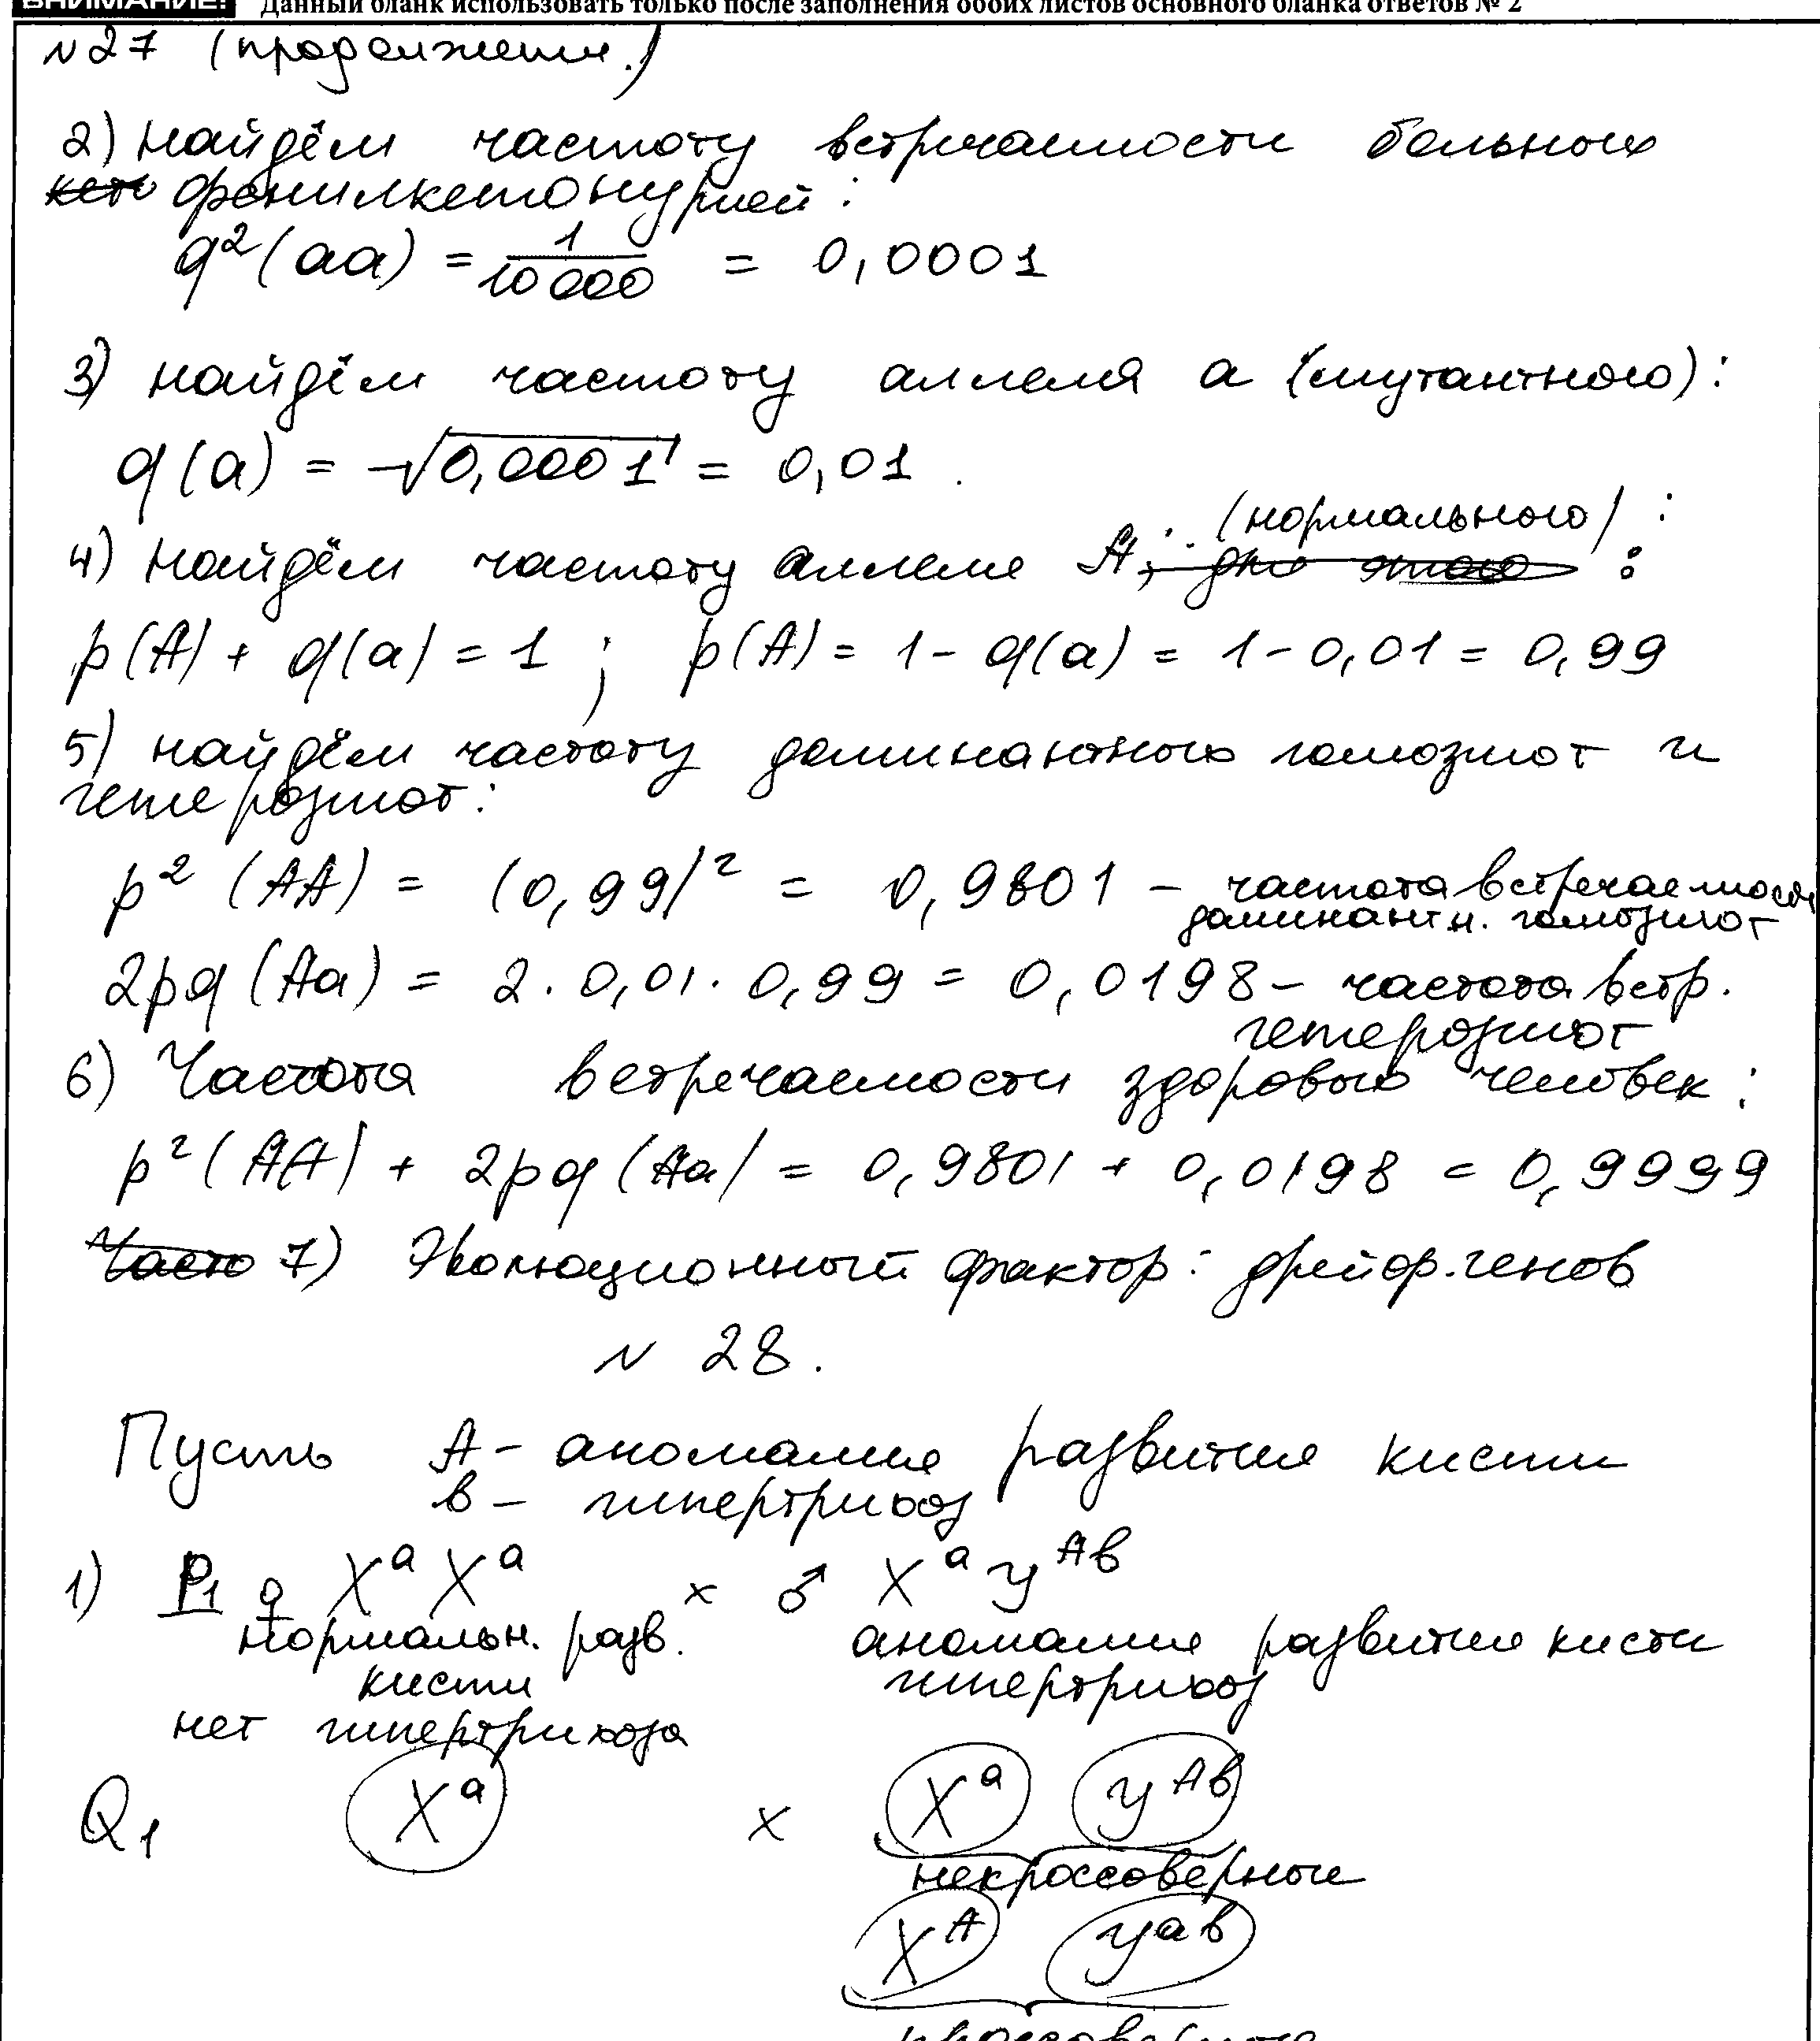 ВНИМАНИЕ! Данный бланк использовать только после заполнения обоих листов основного бланка ответов № 2
№27 (продолжени.)
2) найдём частоту встречаемости больных
кето фенилкетонурией:
q²(aa) = 1/10000 = 0,0001
3) найдём частоту аллеля а (мутантного):
q(a) = √0,0001 = 0,01.
(нормального) :
4) найдём частоту аллеля А, для этого :
p(A) + q(a) = 1 ; p(A) = 1 - q(a) = 1 - 0,01 = 0,99
5) найдём частоту доминантных гомозигот и
гетерозигот:
p² (AA) = (0,99)² = 0,9801 – частота встречаемости
доминантн. гомозигот
2pq (Aa) = 2 · 0,01 · 0,99 = 0,0198 – частота встр.
гетерозигот
6) Частота встречаемости здоровых человек:
p²(AA) + 2pq (Aa) = 0,9801 + 0,0198 = 0,9999
Часто 7) Эволюционный фактор: дрейф генов
№ 28.
Пусть А – аномалия развития кисти
в – гипертрихоз
1) P₁ ♀ XᵃXᵃ × ♂ XᵃYᴬᵇ
нормальн. разв. аномалия развития кисти
кисти гипертрихоз
нет гипертрихоза
G₁ Xᵃ × Xᵃ Yᴬᵇ
некроссоверные
Xᴬ Yᵃᵇ
кроссоверные